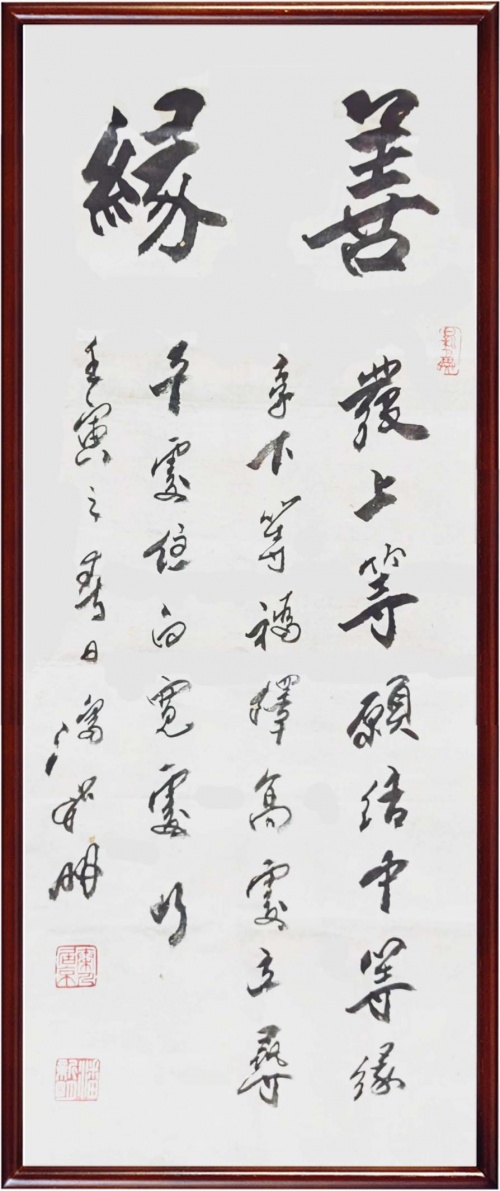 善緣
發上等願結中等緣
享下等福擇高處立尋
平處住向寬處行
壬寅之春日潘明